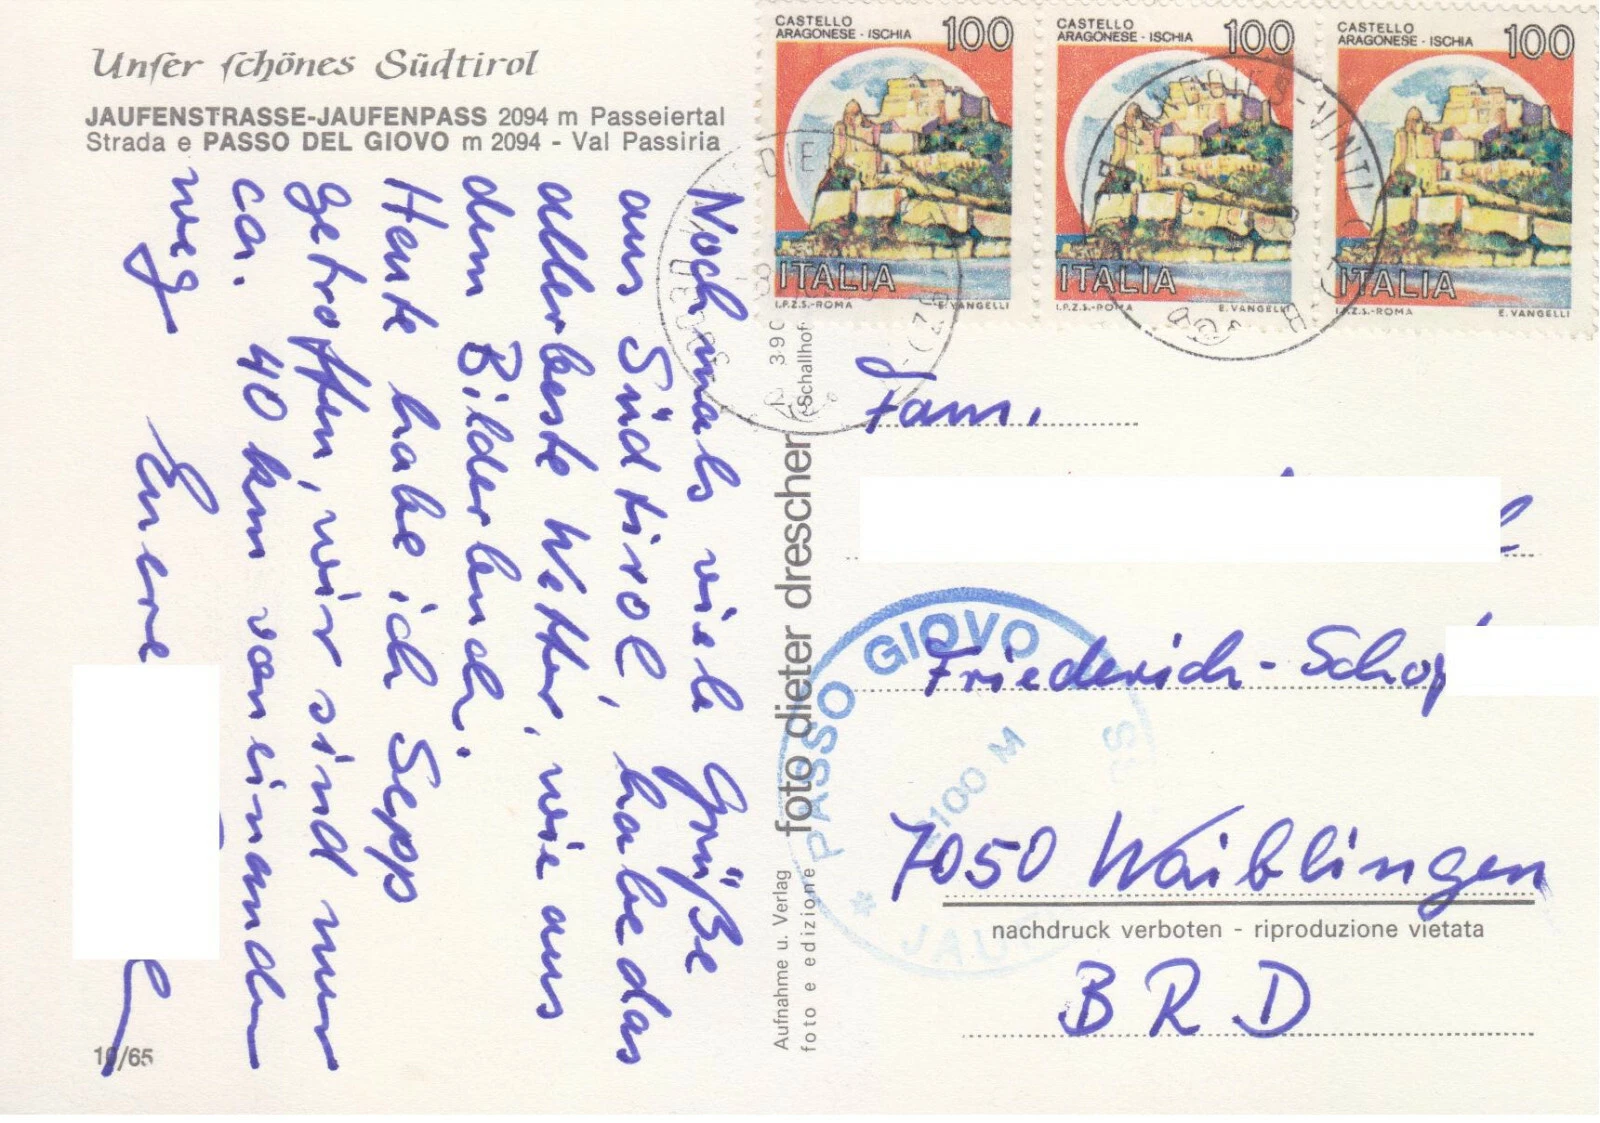 Unser schönes Südtirol
JAUFENSTRASSE-JAUFENPASS 2094 m Passeiertal
Strada e PASSO DEL GIOVO m 2094 - Val Passiria
Nochmals viele Grüße
aus Südtirol, habe das
allerbeste Wetter, wie aus
dem Bilderbuch.
Heute habe ich Sepp
getroffen, wir sind nur
ca. 40 km voneinander
weg
Euere
10/65
Aufnahme u. Verlag
foto e edizione
foto dieter drescher
CASTELLO
ARAGONESE - ISCHIA
100
ITALIA
I.P.Z.S.-ROMA E. VANGELLI
CASTELLO
ARAGONESE - ISCHIA
100
ITALIA
I.P.Z.S.-ROMA E. VANGELLI
CASTELLO
ARAGONESE - ISCHIA
100
ITALIA
I.P.Z.S.-ROMA E. VANGELLI
Fam.
Friederich-Scho
7050 Waiblingen
nachdruck verboten - riproduzione vietata
B R D
PASSO GIOVO
2100 M